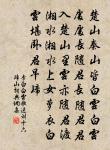 楚山秦山皆白雲白雲
處處長隨君長隨君君
入楚山裏雲亦隨君渡
湘水湘水上女蘿衣白
雲堪臥君早歸
李白白雲歌送劉十六
歸山